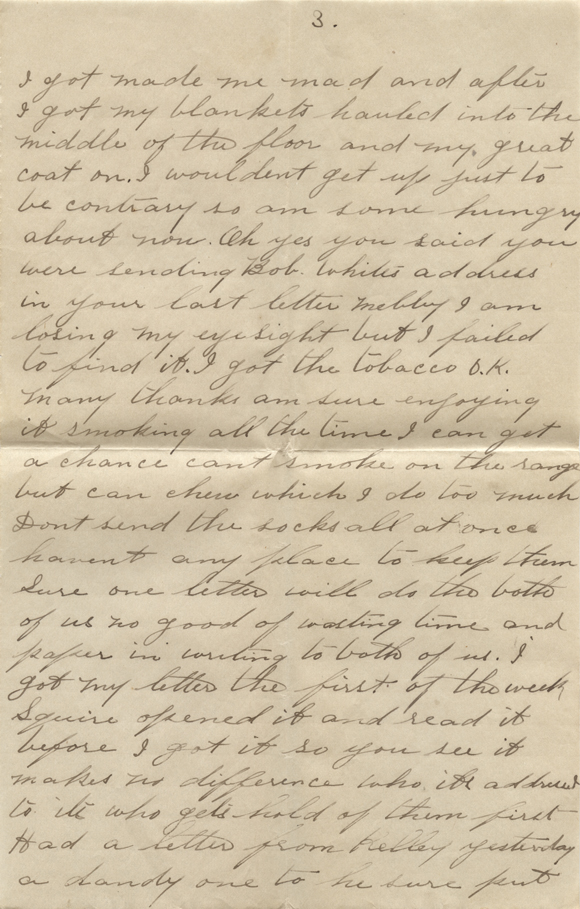 3.
I got made me mad and after
I got my blankets hauled into the
middle of the floor and my great
coat on. I wouldent get up just to
be contrary so am some hungry
about now. Oh yes you said you
were sending Bob. Whites address
in your last letter mebby I am
losing my eyesight but I failed
to find it. I got the tobacco O.K.
many thanks am sure enjoying
it smoking all the time I can get
a chance cant smoke on the range
but can chew which I do too much
Dont send the socks all at once
havent any place to keep them
Sure one letter will do the both
of us no good of wasting time and
paper in writing to both of us. I
got my letter the first of the week
Squire opened it and read it
before I got it so you see it
makes no difference who its addressed
to its who gets hold of them first
Had a letter from Kelley yesterday
a dandy one to he sure put